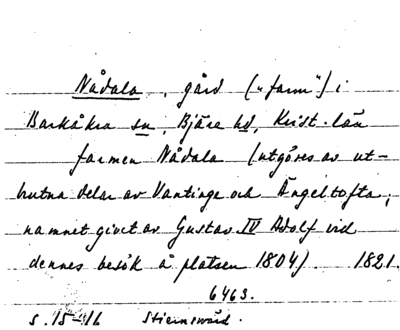 Nådala, gård ("farm") i
Barkåkra sn, Bjäre hd, Krist. län
farmen Nådala (utgöres av ut-
brutna delar av Vantinge och Ängeltofta,
namnet givet av Gustav IV Adolf vid
dennes besök å platsen 1804). 1821.
6463.
s. 15-16 Stiernswärd.